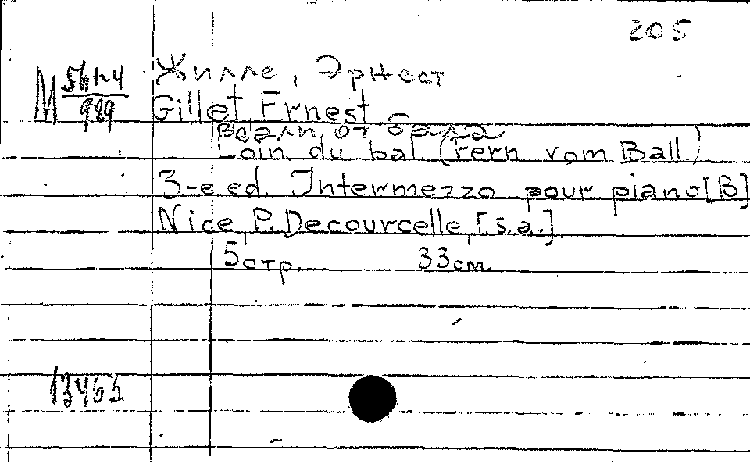 205
Жилле, Эрнест
M
989
Gillet Ernest
Вдали от бала
Loin du bal (Fern vom Ball)
3-e ed. Intermezzo pour piano [B]
Nice P. Decourcelle [s.a.]
5 стр. 33 см.